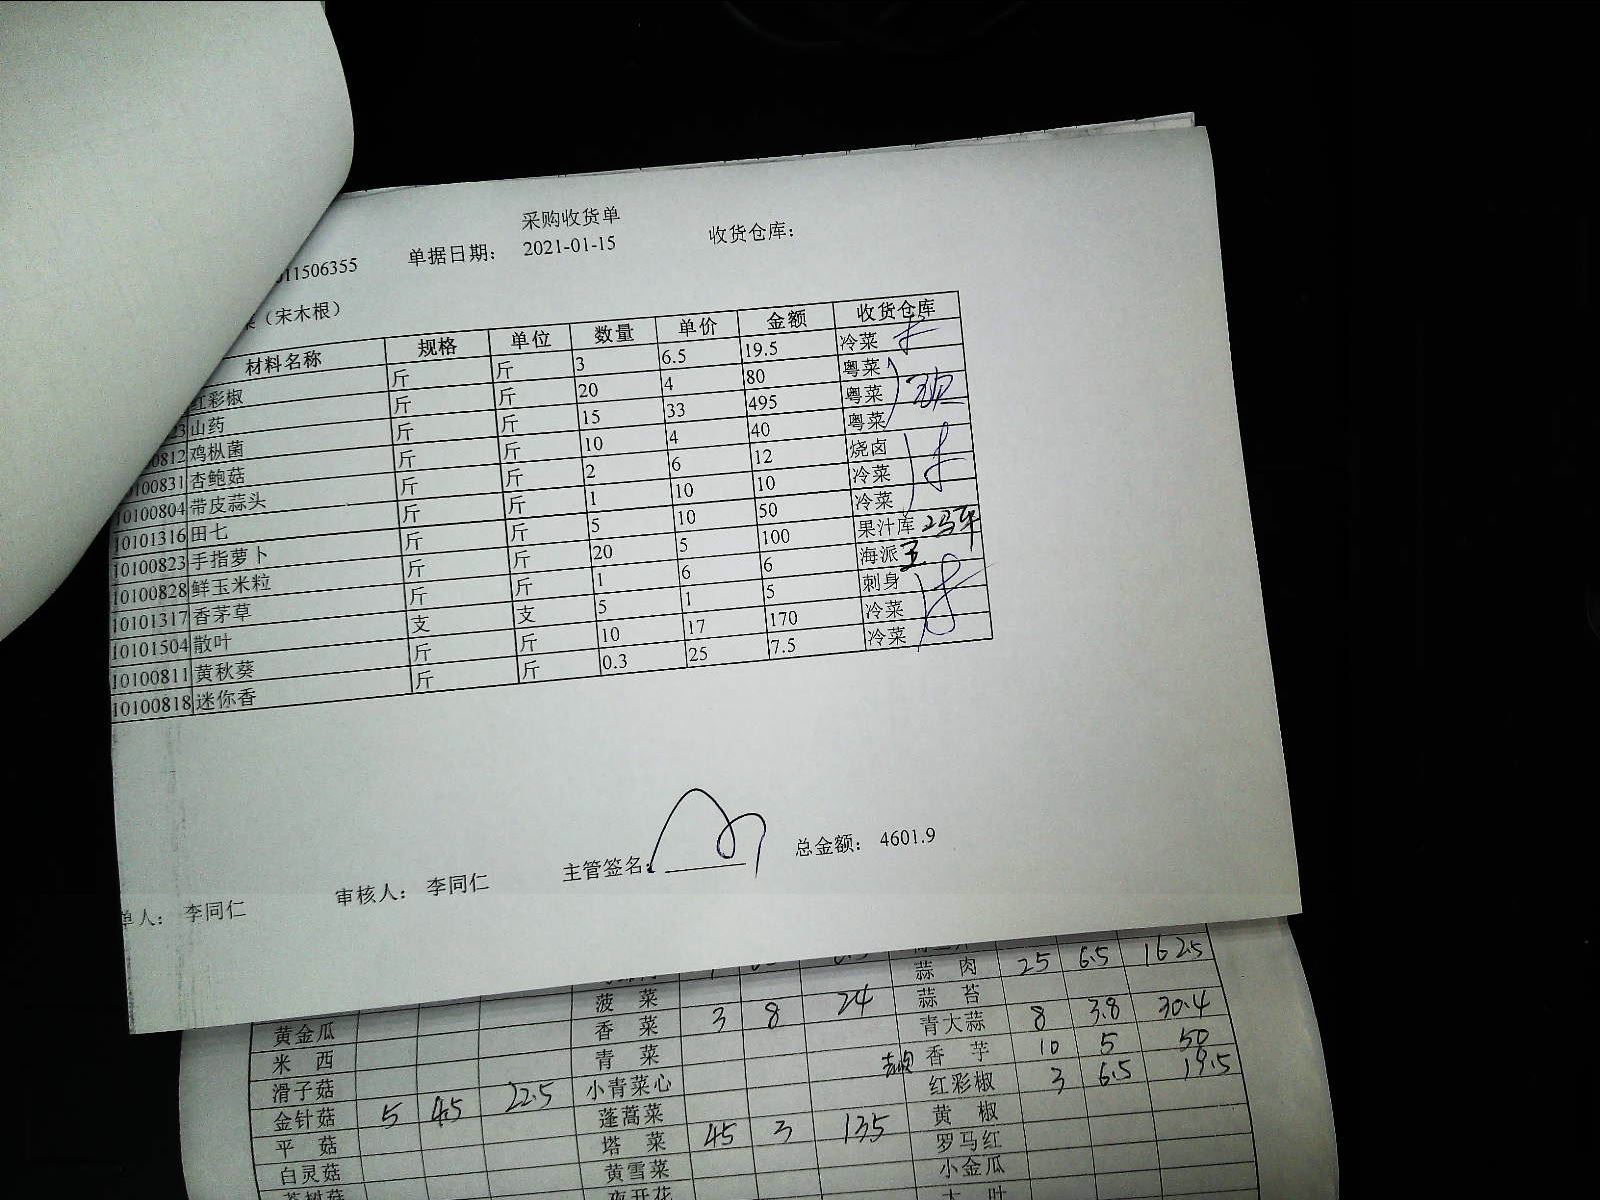 采购收货单
011506355 单据日期： 2021-01-15 收货仓库：
（宋木根）
材料名称 规格 单位 数量 单价 金额 收货仓库
红彩椒 斤 斤 3 6.5 19.5 冷菜
23 山药 斤 斤 20 4 80 粤菜
0812 鸡枞菌 斤 斤 15 33 495 粤菜
0100831 杏鲍菇 斤 斤 10 4 40 粤菜
10100804 带皮蒜头 斤 斤 2 6 12 烧卤
10101316 田七 斤 斤 1 10 10 冷菜
10100823 手指萝卜 斤 斤 5 10 50 冷菜
10100828 鲜玉米粒 斤 斤 20 5 100 果汁库
10101317 香茅草 斤 斤 1 6 6 海派 王
10101504 散叶 支 支 5 1 5 刺身
10100811 黄秋葵 斤 斤 10 17 170 冷菜
10100818 迷你香 斤 斤 0.3 25 7.5 冷菜
单人： 李同仁 审核人： 李同仁 主管签名： 总金额： 4601.9
黄金瓜 菠菜 蒜肉 25 6.5 162.5
米西 香菜 3 8 24 蒜苔
滑子菇 青菜 青大蒜 8 3.8 30.4
金针菇 5 4.5 22.5 小青菜心 香芋 10 5 50
平菇 蓬蒿菜 红彩椒 3 6.5 19.5
白灵菇 塔菜 45 3 135 黄椒
茶树菇 黄雪菜 罗马红
夜开花 小金瓜
大叶